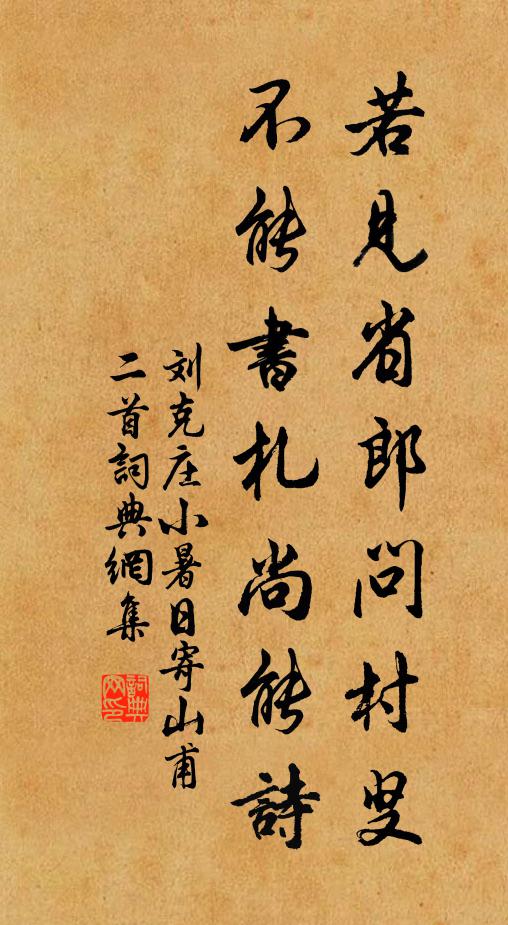 若見省郎問村叟
不能書札尚能詩
刘克庄小暑日寄山甫
二首詞典網集
詞典
网印